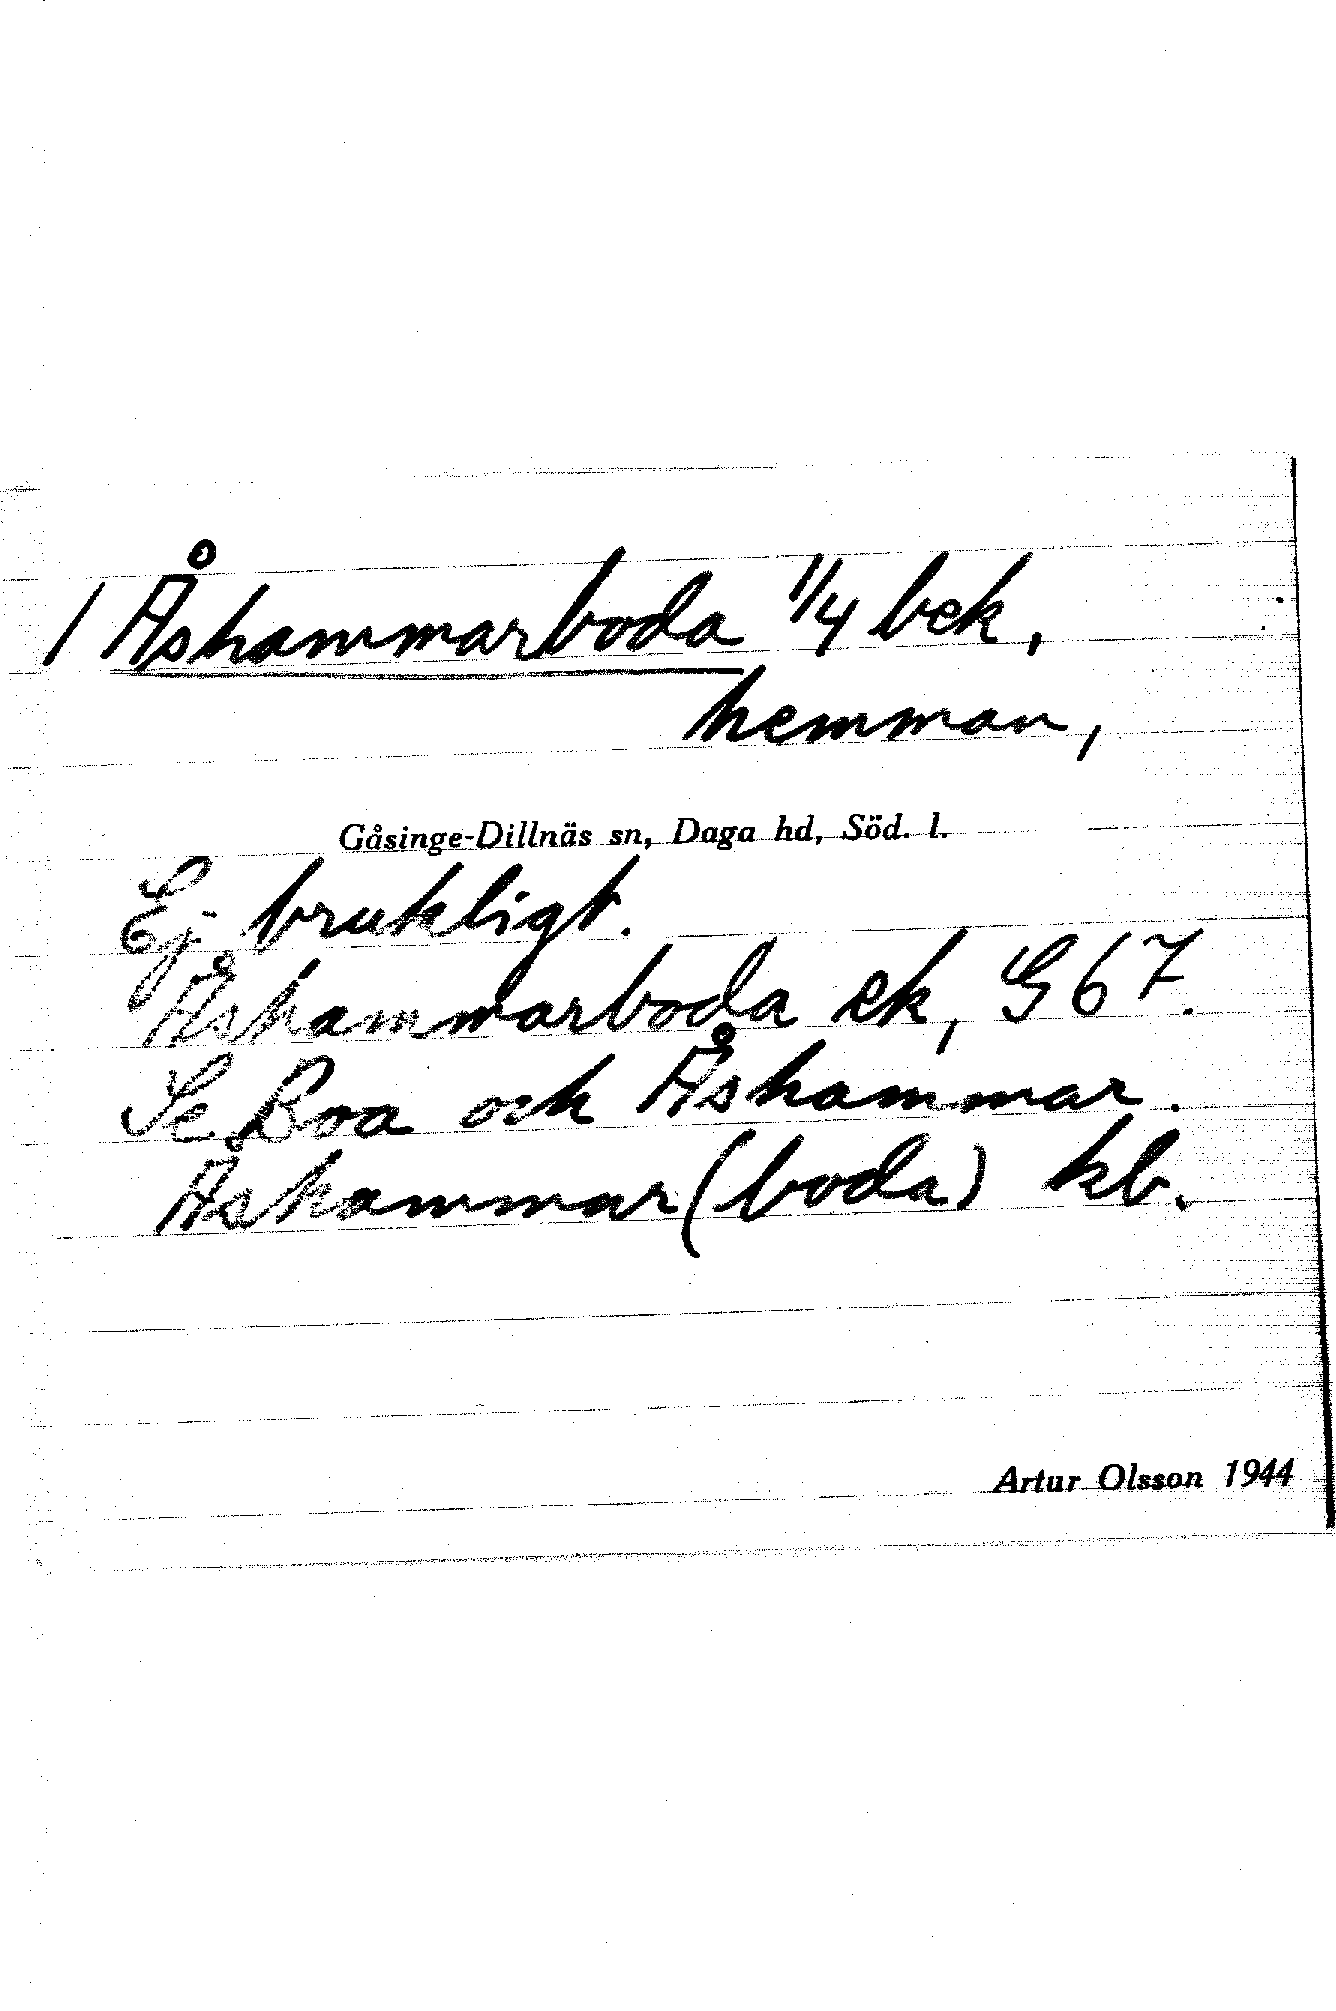 / Åshammarboda 1/4 bek,
hemman,
Gåsinge-Dillnäs sn, Daga hd, Söd. l.
Ej brukligt.
Åshammarboda ek, G 67.
Se Boa och Åshammar.
Åshammar (boda) kb.
Artur Olsson 1944